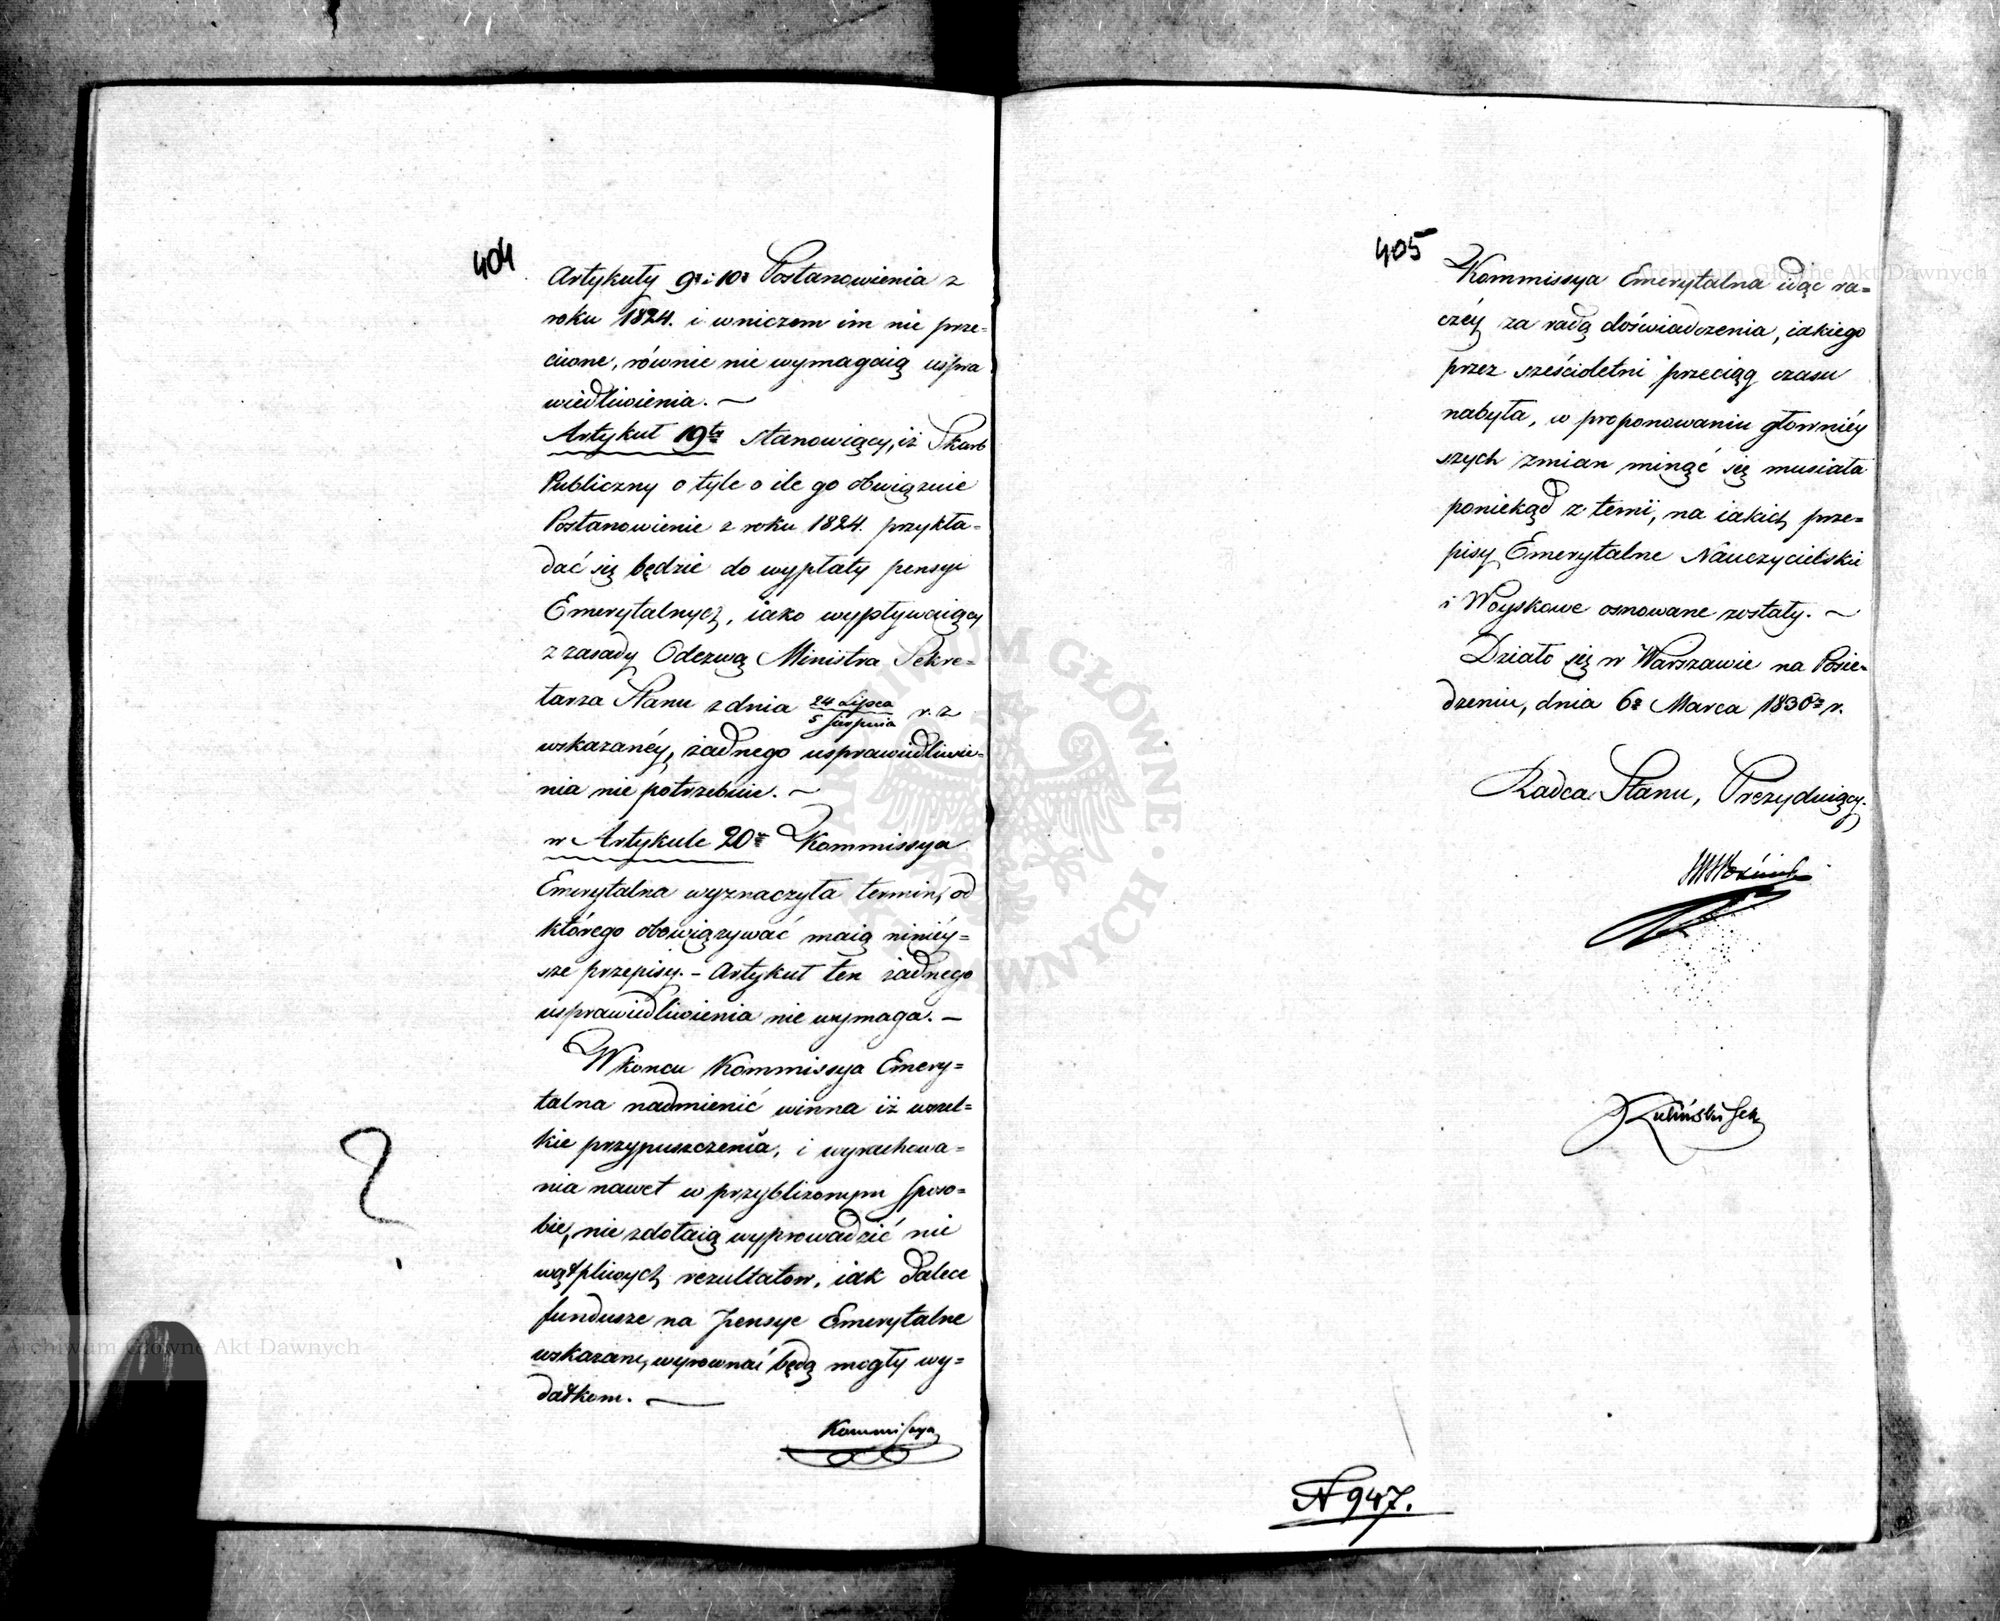 404
Artykuły 9. i 10. Postanowienia z
roku 1824. i wniczem im nie prze-
ciwne, równie nie wymagaią uspra
wiedliwienia. ~
Artykuł 19ty stanowiący, iż Skarb
Publiczny o tyle o ile go obwiązuie
Postanowienie z roku 1824. przykła-
dać się będzie do wypłaty pensyi
Emerytalnych, iako wypływaiący
z zasady Odezwą Ministra Sekre-
tarza Stanu z dnia 24 Lipca / 5 Sierpnia r. z
wskazanéy, żadnego usprawiedliwie-
nia nie potrzebuie. ~
w Artykule 20m Kommissya
Emerytalna wyznaczyła termin, od
którego obowiązywać maią niniéy-
sze przepisy. - Artykuł ten żadnego
usprawiedliwienia nie wymaga. -
W koncu Kommissya Emery-
talna nadmienić winna iż wszel-
kie przypuszczenia, i wyrachowa-
nia nawet w przybliżonym sposo-
bie, nie zdołaią wyprowadzić nie
wątpliwych rezultatow, iak dalece
fundusze na pensye Emerytalne
wskazane, wyrownać będą mogły wy-
datkom. —
Kommissya
?
405
Kommissya Emerytalna idąc ra-
czéy za radą doświadczenia, iakiego
przez sześcioletni przeciąg czasu
nabyła, w proponowaniu głowniéy
szych zmian minąć się musiała
poniekąd z temi, na iakich prze-
pisy Emerytalne Nauczycielskie
i Woyskowe osnowane zostały. ~
Działo się w Warszawie na Posie-
dzeniu, dnia 6. Marca 1830. r.
Radca Stanu, Prezyduiący.
Kuliński Sek
N 947.
Archiwum Główne Akt Dawnych
Archiwum Główne Akt Dawnych
ARCHIWUM GŁÓWNE AKT DAWNYCH